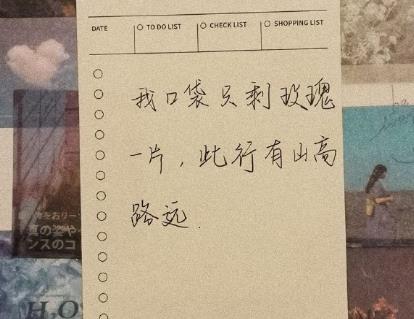 DATE
TO DO LIST
CHECK LIST
SHOPPING LIST
我口袋只剩玫瑰
一片，此行有山高
路远.
H.O